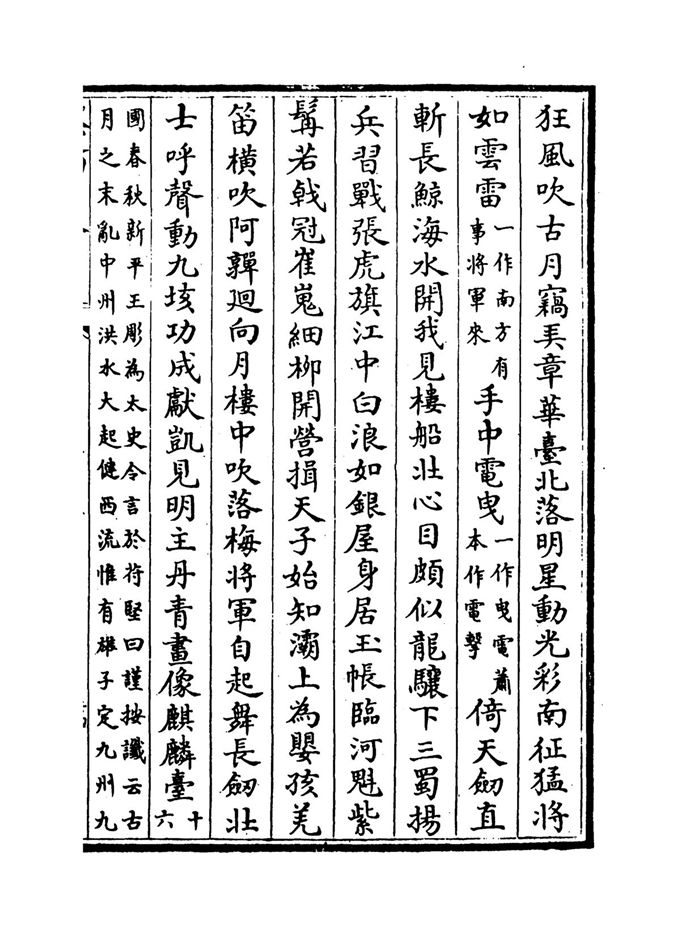 狂風吹古月竊弄章華臺北落明星動光彩南征猛將
如雲雷一作南方有事將軍來手中電曳一作曳電蕭本作電擊倚天劔直
斬長鯨海水開我見樓船壯心目頗似龍驤下三蜀揚
兵習戰張虎旗江中白浪如銀屋身居玉帳臨河魁紫
髯若戟冠崔嵬細柳開營揖天子始知灞上為嬰孩羌
笛橫吹阿嚲迴向月樓中吹落梅將軍自起舞長劔壯
士呼聲動九垓功成獻凱見明主丹青畫像麒麟臺十六
國春秋新平王彫為太史令言於苻堅曰謹按讖云古
月之末亂中州洪水大起健西流惟有雄子定九州九